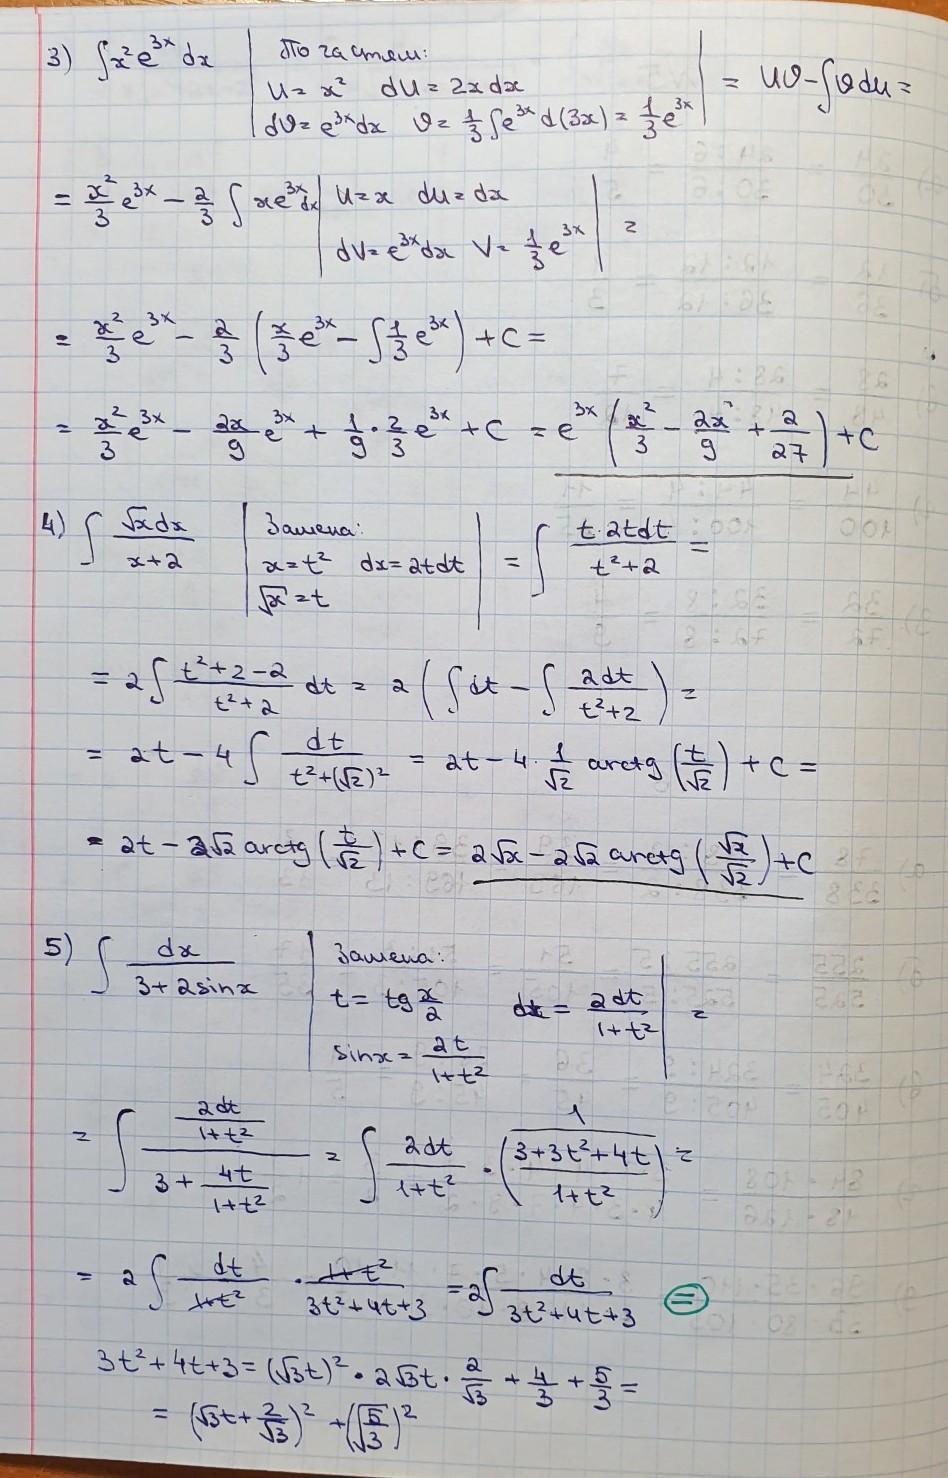 3) ∫x²e^{3x}dx | По частям:
u = x² du = 2x dx
dϑ = e^{3x}dx ϑ = 1/3 ∫e^{3x} d(3x) = 1/3 e^{3x} | = Uϑ − ∫ϑdu =
= x²/3 e^{3x} − 2/3 ∫ xe^{3x}dx | u = x du = dx
dV = e^{3x}dx V = 1/3 e^{3x} | =
= x²/3 e^{3x} − 2/3 (x/3 e^{3x} − ∫1/3 e^{3x}) + C =
= x²/3 e^{3x} − 2x/9 e^{3x} + 1/9 · 2/3 e^{3x} + C = e^{3x} (x²/3 − 2x/9 + 2/27) + C
4) ∫ √x dx/(x+2) | Замена:
x = t² dx = 2t dt
√x = t | = ∫ t·2t dt/(t²+2) =
= 2∫ (t²+2−2)/(t²+2) dt = 2 (∫dt − ∫ 2dt/(t²+2)) =
= 2t − 4∫ dt/(t²+(√2)²) = 2t − 4 · 1/√2 arctg (t/√2) + C =
= 2t − 2√2 arctg (t/√2) + C = 2√x − 2√2 arctg (√x/√2) + C
5) ∫ dx/(3+2sinx) | Замена:
t = tg x/2 dx = 2dt/(1+t²)
sinx = 2t/(1+t²) | =
= ∫ (2dt/(1+t²))/(3 + 4t/(1+t²)) = ∫ 2dt/(1+t²) · 1/((3+3t²+4t)/(1+t²)) =
= 2∫ dt/(1+t²) · (1+t²)/(3t²+4t+3) = 2∫ dt/(3t²+4t+3) =
3t²+4t+3 = (√3t)² · 2√3t · 2/√3 + 4/3 + 5/3 =
= (√3t + 2/√3)² + (√5/3)²